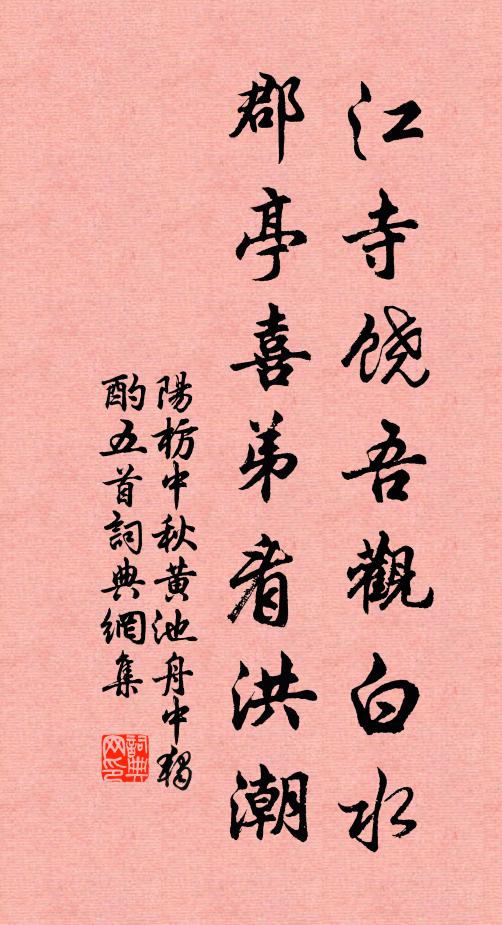 江寺饶吾觀白水
郡亭喜弟看洪潮
陽枋中秋黄池舟中獨
酌五首詞典網集
詞典
网印